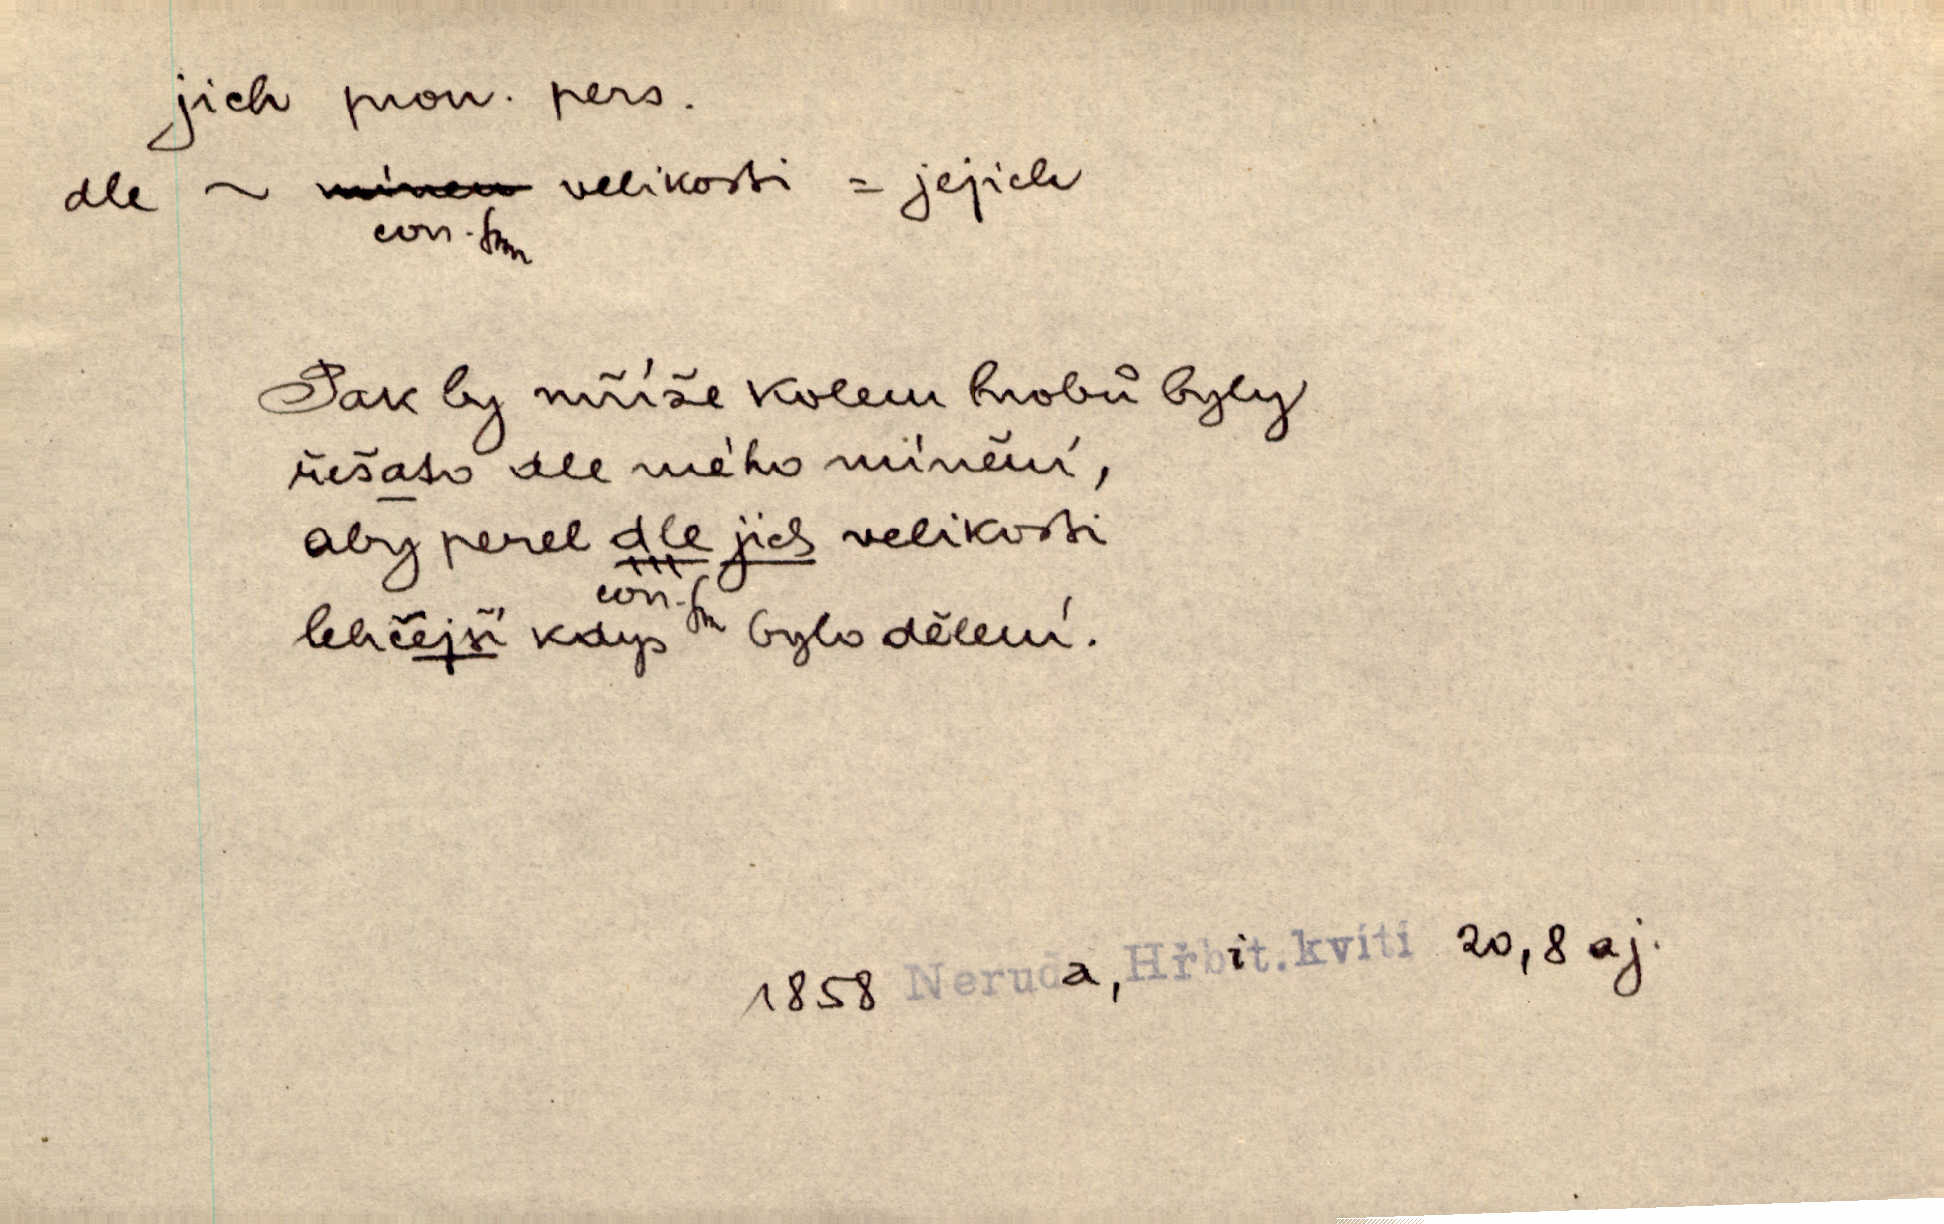 jich pron. pers.
dle ~ mínen velikosti = jejich
corr.
Pak by mříže kolem hrobů byly
řešato dle mého mínění,
aby perel dle jich velikosti
corr.
lehčejší kdys bylo dělení.
1858 Neruda, Hřbit.kvítí 20,8 aj.